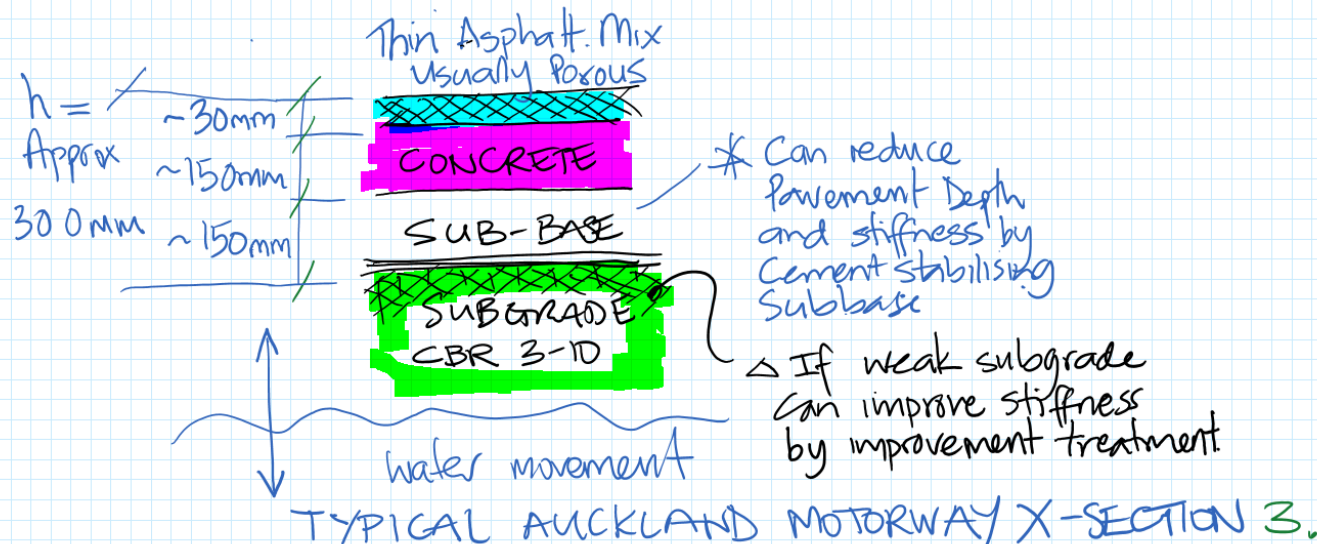 Thin Asphalt. Mix
Usually Porous
h =
Approx
300mm
~30mm
~150mm
~150mm
CONCRETE
SUB-BASE
SUBGRADE
CBR 3-10
* Can reduce
Pavement Depth
and stiffness by
Cement stabilising
Subbase
△ If weak subgrade
can improve stiffness
by improvement treatment.
water movement
TYPICAL AUCKLAND MOTORWAY X-SECTION 3.